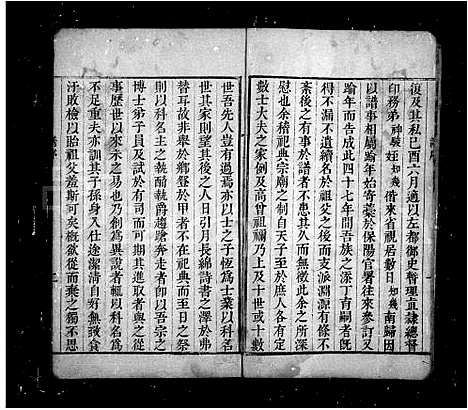 復及其私已酉六月適以左都御史暫理直隸總督
印務弟神駿姪如幾偕來省視居數日如幾南歸因
以譜事相屬踰年始寄藁於保陽官署往來參訂又
踰年而後成此四十七年間吾族之添丁育嗣者旣
得不漏不遺續名於祖父之後支派淵源有條不
紊後之覽者亦不患其久而無徵此余之所深
慰也余稽祀典宗廟之制自士至於庶人各有
數士大夫之家得祭及高曾祖禰乃上及十世或十數
世吾先人豈有過焉亦以士之子恆爲士業以科名
世其家則自茲以後之人日引月長綿詩書之澤於弗
替耳故非舉於鄉登於甲者不在祀典而每日之祭
則又以科名之主之執酌執爵趨蹌奔走者卽以吾宗之
博士弟子員及試於有司而可期其進取者與之從
事歷世以來示之易也乃創爲異說者輒以科名爲
不足重夫亦訓其子孫身入仕途潔清自好無或
汙敗檢以貽祖父羞斯可矣槪欲從而棄之獨不思